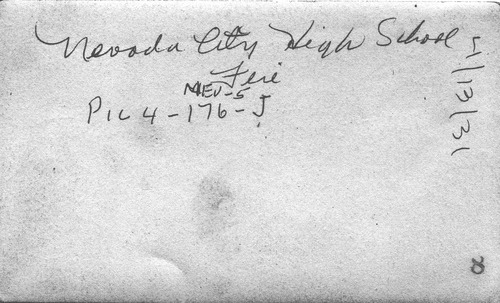 Nevada City High School
Fire
NEV-5
PIC 4-176-J
4/13/31
8